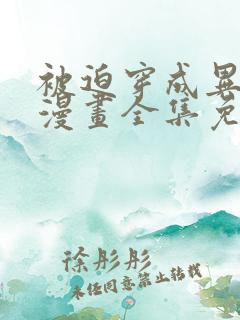 被迫穿成異
漫畫全集免
徐彤彤
未经同意禁止转载